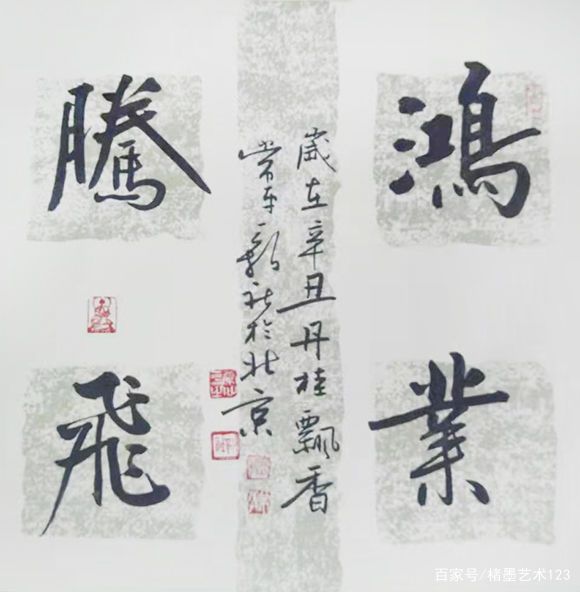 鴻
業
嵗在辛丑丹桂飄香
常於北京
騰
飛
百家号/楮墨艺术123